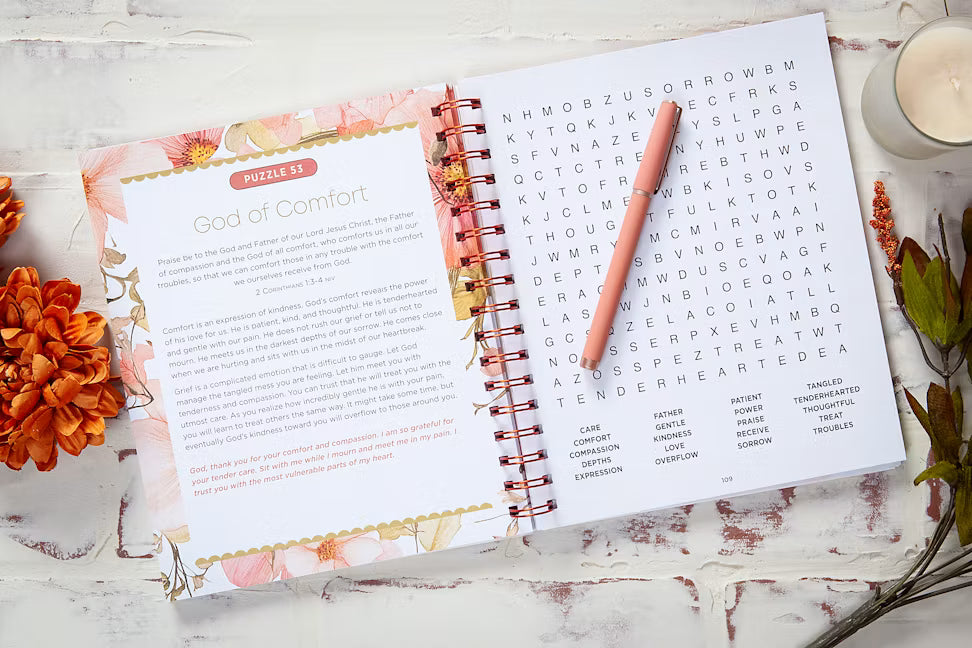 PUZZLE 53
God of Comfort
Praise be to the God and Father of our Lord Jesus Christ, the Father
of compassion and the God of all comfort, who comforts us in all our
troubles, so that we can comfort those in any trouble with the comfort
we ourselves receive from God.
2 CORINTHIANS 1:3-4 NIV
Comfort is an expression of kindness. God's comfort reveals the power
of his love for us. He is patient, kind, and thoughtful. He is tenderhearted
and gentle with our pain. He does not rush our grief or tell us not to
mourn. He meets us in the darkest depths of our sorrow. He comes close
when we are hurting and sits with us in the midst of our heartbreak.
Grief is a complicated emotion that is difficult to gauge. Let God
manage the tangled mess you are feeling. Let him meet you with
tenderness and compassion. You can trust that he will treat you with the
utmost care. As you realize how incredibly gentle he is with your pain,
you will learn to treat others the same way. It might take some time, but
eventually God's kindness toward you will overflow to those around you.
God, thank you for your comfort and compassion. I am so grateful for
your tender care. Sit with me while I mourn and meet me in my pain. I
trust you with the most vulnerable parts of my heart.
N H M O B Z U S O R R O W B M
K Y T Q K J K V E C F R K S
S F V N A Z E Y S L P G A
Q C T C T R E N Y H U W P E
K V T O F R R E B T H W D
K J C L M E W B K I S O V S
T H O U G T F U L K T O T K
J W M R Y M C M I R V A A I
D E P T S B V N O E B W P N
E R A M W D U S C V A G F
L A S W J N B I O E Q O A K
G C S Z E L A C O I A T L L
N O S S E R P X E V H M B Q
A Z O S S P E Z T R E A T W T
T E N D E R H E A R T E D E A
CARE
COMFORT
COMPASSION
DEPTHS
EXPRESSION
FATHER
GENTLE
KINDNESS
LOVE
OVERFLOW
PATIENT
POWER
PRAISE
RECEIVE
SORROW
TANGLED
TENDERHEARTED
THOUGHTFUL
TREAT
TROUBLES
109